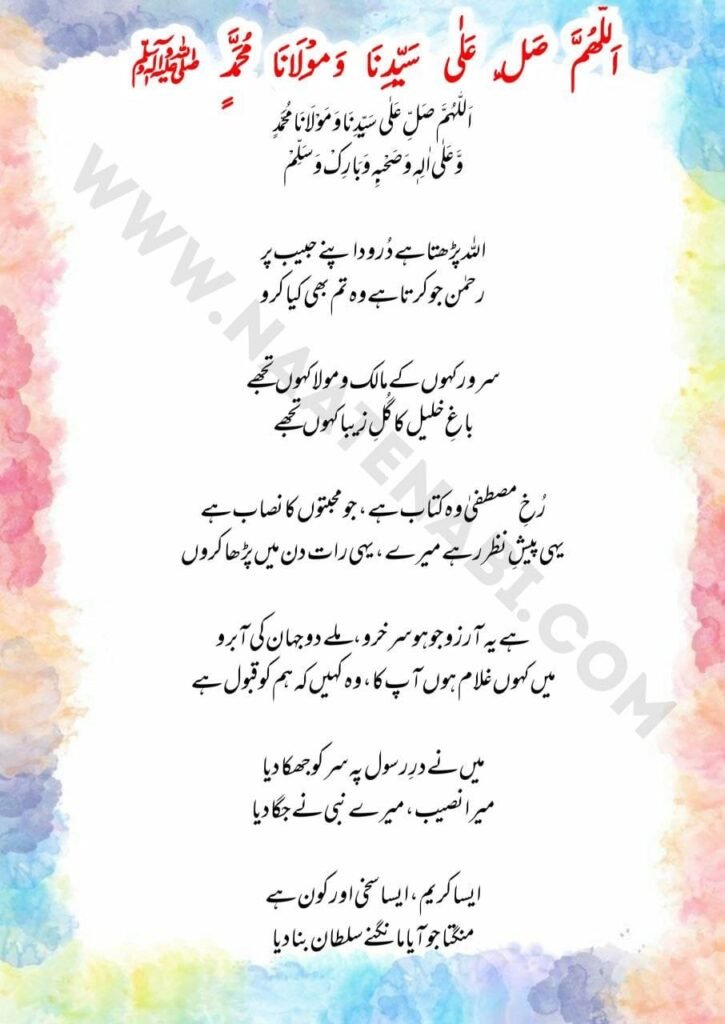 اَللّٰهُمَّ صَلِّ عَلٰی سَیِّدِنَا وَمَوْلَانَا مُحَمَّدٍ ﷺ
اَللّٰهُمَّ صَلِّ عَلٰی سَیِّدِنَا وَمَوْلَانَا مُحَمَّدٍ
وَّعَلٰی اٰلِهٖ وَصَحْبِهٖ وَبَارِكْ وَسَلِّمْ
اللہ پڑھتا ہے دُرود اپنے حبیب پر
رحمٰن جو کرتا ہے وہ تم بھی کیا کرو
سرور کہوں کے مالک و مولا کہوں تجھے
باغِ خلیل کا گُلِ زیبا کہوں تجھے
رُخِ مصطفیٰ وہ کتاب ہے، جو محبتوں کا نصاب ہے
یہی پیشِ نظر رہے میرے، یہی رات دن میں پڑھا کروں
ہے یہ آرزو جو ہو سرخرو، ملے دو جہان کی آبرو
میں کہوں غلام ہوں آپ کا، وہ کہیں کہ ہم کو قبول ہے
میں نے درِ رسول پہ سر کو جھکا دیا
میرا نصیب، میرے نبی نے جگا دیا
ایسا کریم، ایسا سخی اور کون ہے
منگتا جو آیا مانگنے سلطان بنا دیا
WWW.NAATENABI.COM